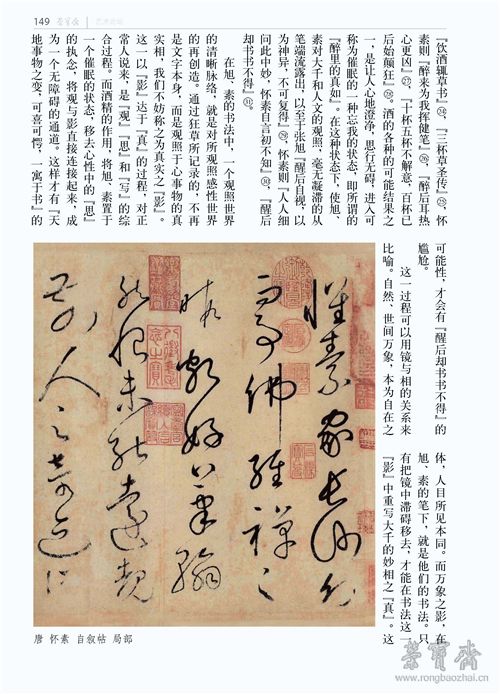 149
荣宝斋
『饮酒辄草书』㉔、『三杯草圣传』㉕，怀
素则『醉来为我挥健笔』㉖，『醉后耳热
心更凶』㉗，『十杯五杯不解意，百杯已
后始颠狂』㉘。酒的各种的可能结果之
一，是让人心地澄净，思行无碍，进入可
称为催眠的一种忘我的状态，即所谓的
『醉里的真如』。在这种状态下，使旭、
素对大千和人文的观照，毫无凝滞的从
笔端流露出，以至于张旭『醒后自视，以
为神异，不可复得』㉙，怀素则『人人细
问此中妙，怀素自言初不知』㉚，『醒后
却书书不得』㉛。
在旭、素的书法中，一个观照世界
的清晰脉络，就是对所观照感性世界
的再创造。通过狂草所记录的，不再
是文字本身，而是观照于心事物的真
实相，我们不妨称之为真实之『影』。
这一以『影』达于『真』的过程，对正
常人说来，是『观』『思』和『写』的综
合过程。而酒精的作用，将旭、素置于
一个催眠的状态，移去心性中的『思』
的执念，将观与影直接连接起来，成
为一个无障碍的通道。这样才有『天
地事物之变，可喜可愕，一寓于书』的
可能性，才会有『醒后却书书不得』的
尴尬。
这一过程可以用镜与相的关系来
比喻。自然、世间万象，本为自在之
体，人目所见本同。而万象之影，在
旭、素的笔下，就是他们的书法。只
有把镜中滞碍移去，才能在书法这一
『影』中重写大千的妙相之『真』。这
懷素家長沙幼
而事佛經禪之
暇頗好筆翰
然恨未能遠覩
前人之奇迹所
唐 怀素 自叙帖 局部
榮寶齋
www.rongbaozhai.cn